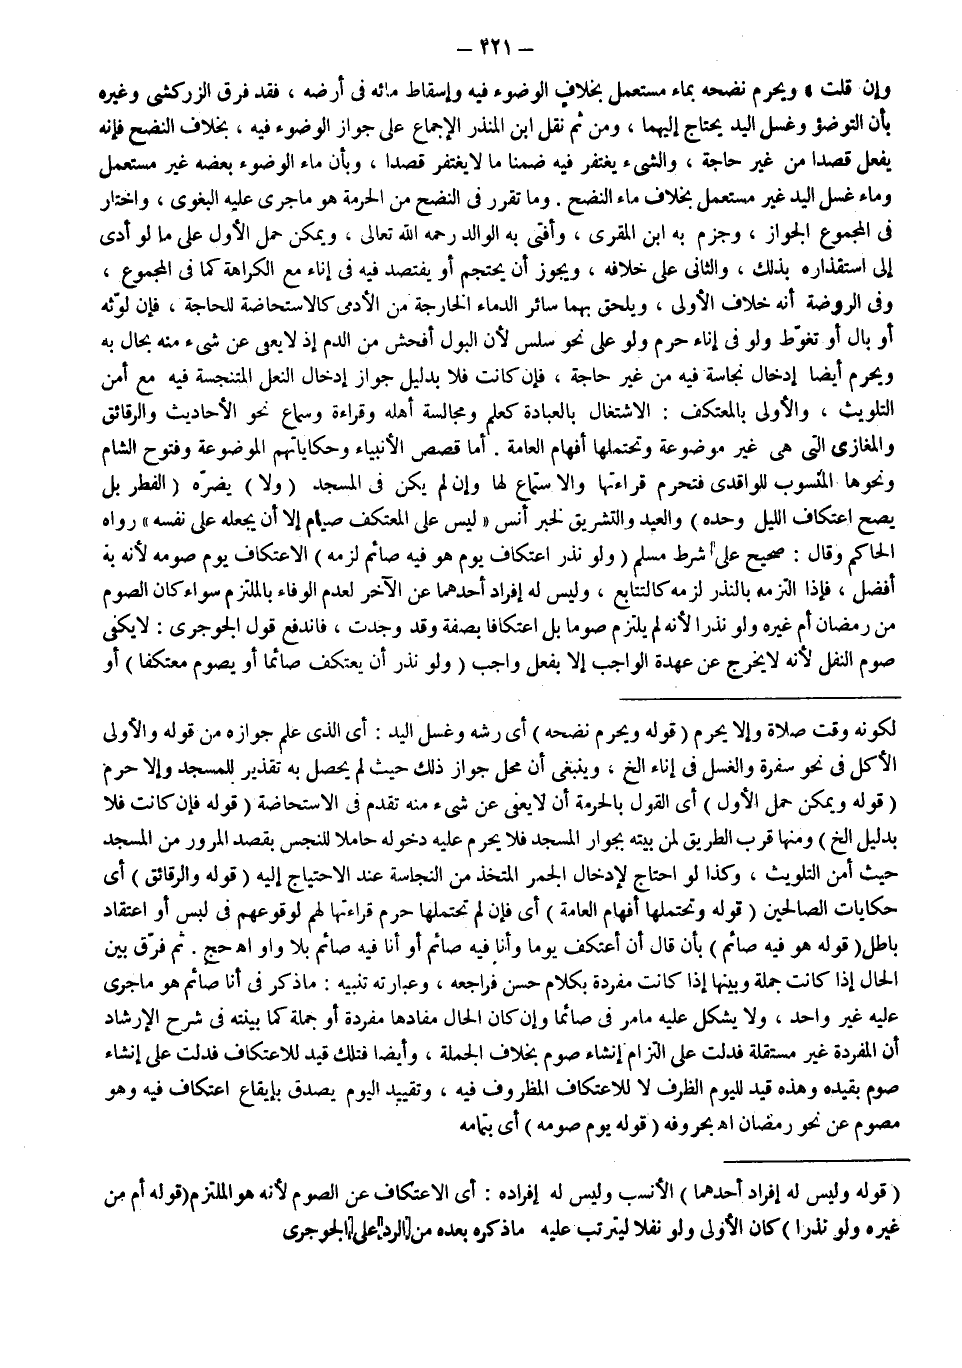 — ٢٢١ —
وإن قلت ، ويحرم نضحه بماء مستعمل بخلاف الوضوء فيه وإسقاط مائه فى أرضه ، فقد فرق الزركشى وغيره
بأن التوضؤ وغسل اليد يحتاج إليهما ، ومن ثم نقل ابن المنذر الإجماع على جواز الوضوء فيه ، بخلاف النضح فإنه
يفعل قصدا من غير حاجة ، والشىء يغتفر فيه ضمنا ما لايغتفر قصدا ، وبأن ماء الوضوء بعضه غير مستعمل
وماء غسل اليد غير مستعمل بخلاف ماء النضح . وما تقرر فى النضح من الحرمة هو ماجرى عليه البغوى ، واختار
فى المجموع الجواز ، وجزم به ابن المقرى ، وأفتى به الوالد رحمه الله تعالى ، ويمكن حمل الأول على ما لو أدى
إلى استقذاره بذلك ، والثانى على خلافه ، ويجوز أن يحتجم أو يفتصد فيه فى إناء مع الكراهة كما فى المجموع ،
وفى الروضة أنه خلاف الأولى ، ويلحق بهما سائر الدماء الخارجة من الآدمى كالاستحاضة للحاجة ، فإن لوّثه
أو بال أو تغوّط ولو فى إناء حرم ولو على نحو سلس لأن البول أفحش من الدم إذ لايعفى عن شىء منه بحال به
ويحرم أيضا إدخال نجاسة فيه من غير حاجة ، فإن كانت فلا بدليل جواز إدخال النعل المتنجسة فيه مع أمن
التلويث ، والأولى بالمعتكف : الاشتغال بالعبادة كعلم ومجالسة أهله وقراءة وسماع نحو الأحاديث والرقائق
والمغازى التى هى غير موضوعة وتحتملها أفهام العامة . أما قصص الأنبياء وحكاياتهم الموضوعة وفتوح الشام
ونحوها المنسوب للواقدى فتحرم قراءتها والاستماع لها وإن لم يكن فى المسجد ( ولا ) يضرّه ( الفطر بل
يصح اعتكاف الليل وحده ) والعيد والتشريق لخبر أنس « ليس على المعتكف صيام إلا أن يجعله على نفسه » رواه
الحاكم وقال : صحيح على شرط مسلم ( ولو نذر اعتكاف يوم هو فيه صائم لزمه ) الاعتكاف يوم صومه لأنه به
أفضل ، فإذا التزمه بالنذر لزمه كالتتابع ، وليس له إفراد أحدهما عن الآخر لعدم الوفاء بالملتزم سواء كان الصوم
من رمضان أم غيره ولو نذرا لأنه لم يلتزم صوما بل اعتكافا بصفة وقد وجدت ، فاندفع قول الجوجرى : لايكفى
صوم النفل لأنه لايخرج عن عهدة الواجب إلا بفعل واجب ( ولو نذر أن يعتكف صائما أو يصوم معتكفا ) أو
لكونه وقت صلاة وإلا يحرم ( قوله ويحرم نضحه ) أى رشه وغسل اليد : أى الذى علم جوازه من قوله والأولى
الأكل فى نحو سفرة والغسل فى إناء الخ ، وينبغى أن محل جواز ذلك حيث لم يحصل به تقذير للمسجد وإلا حرم
( قوله ويمكن حمل الأول ) أى القول بالحرمة أن لايعفى عن شىء منه تقدم فى الاستحاضة ( قوله فإن كانت فلا
بدليل الخ ) ومنها قرب الطريق لمن بيته بجوار المسجد فلا يحرم عليه دخوله حاملا للنجس بقصد المرور من المسجد
حيث أمن التلويث ، وكذا لو احتاج لإدخال الجمر المتخذ من النجاسة عند الاحتياج إليه ( قوله والرقائق ) أى
حكايات الصالحين ( قوله وتحتملها أفهام العامة ) أى فإن لم تحتملها حرم قراءتها لهم لوقوعهم فى لبس أو اعتقاد
باطل ( قوله هو فيه صائم ) بأن قال أن أعتكف يوما وأنا فيه صائم أو أنا فيه صائم بلا واو اه حج . ثم فرّق بين
الحال إذا كانت جملة وبينها إذا كانت مفردة بكلام حسن فراجعه ، وعبارته تنبيه : ماذكر فى أنا صائم هو ماجرى
عليه غير واحد ، ولا يشكل عليه مامر فى صائما وإن كان الحال مفادها مفردة أو جملة كما بينته فى شرح الإرشاد
أن المفردة غير مستقلة فدلت على التزام إنشاء صوم بخلاف الجملة ، وأيضا فتلك قيد للاعتكاف فدلت على إنشاء
صوم بقيده وهذه قيد لليوم الظرف لا للاعتكاف المظروف فيه ، وتقييد اليوم يصدق بإيقاع اعتكاف فيه وهو
مصوم عن نحو رمضان اه بحروفه ( قوله يوم صومه ) أى بتمامه
( قوله وليس له إفراد أحدهما ) الأنسب وليس له إفراده : أى الاعتكاف عن الصوم لأنه هو الملتزم ( قوله أم من
غيره ولو نذرا ) كان الأولى ولو نفلا ليترتب عليه ماذكره بعده من الرد على الجوجرى